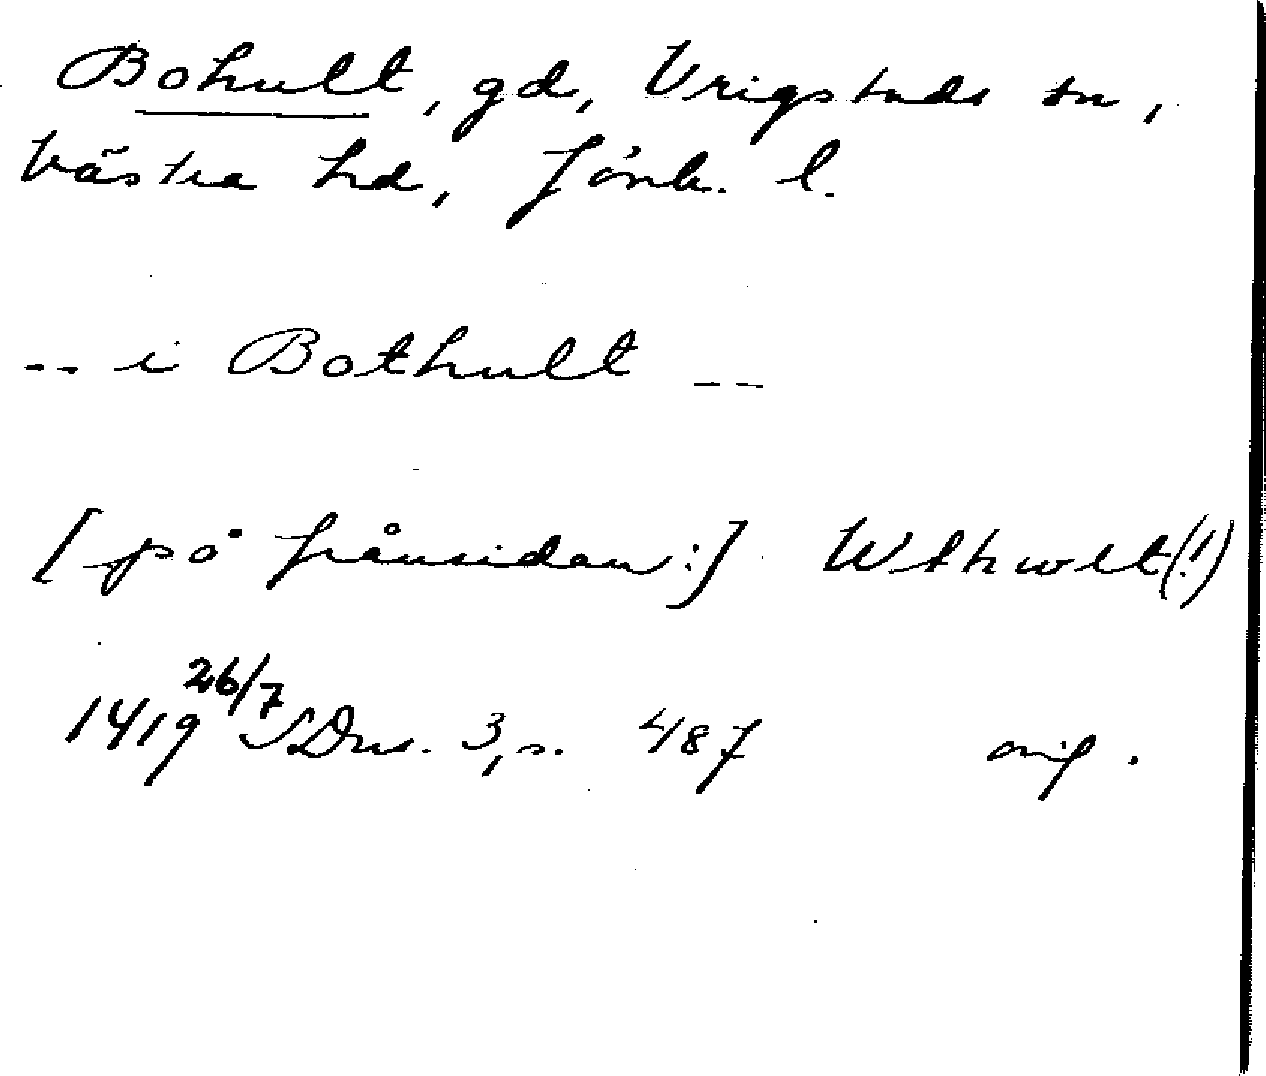 Bohult, gd, Vrigstads sn,
Västra hd, Jönk. l.
-- i Bothult --
[på frånsidan:] Wthwlt(!)
1419 26/7 SDns. 3, s. 487 orig.